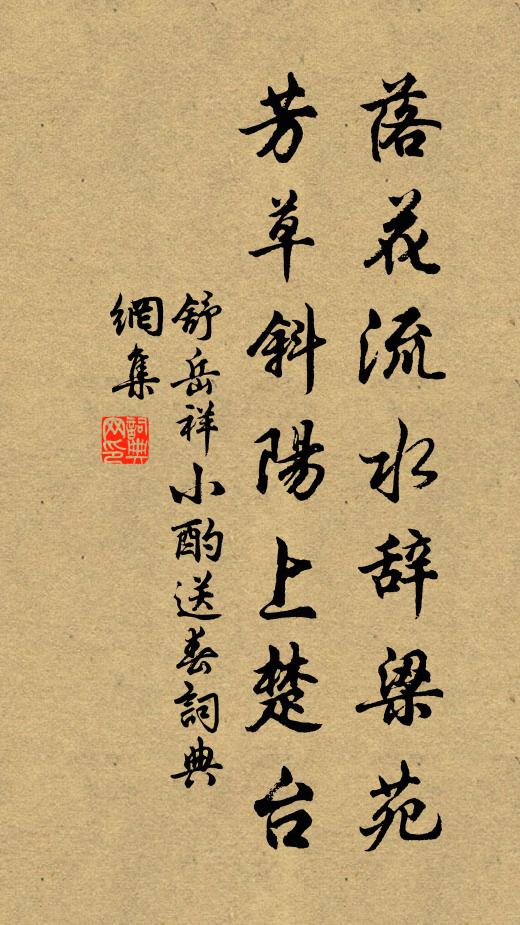 落花流水辞梁苑
芳草斜陽上楚台
舒岳祥小酌送春詞典
網集
詞典网印